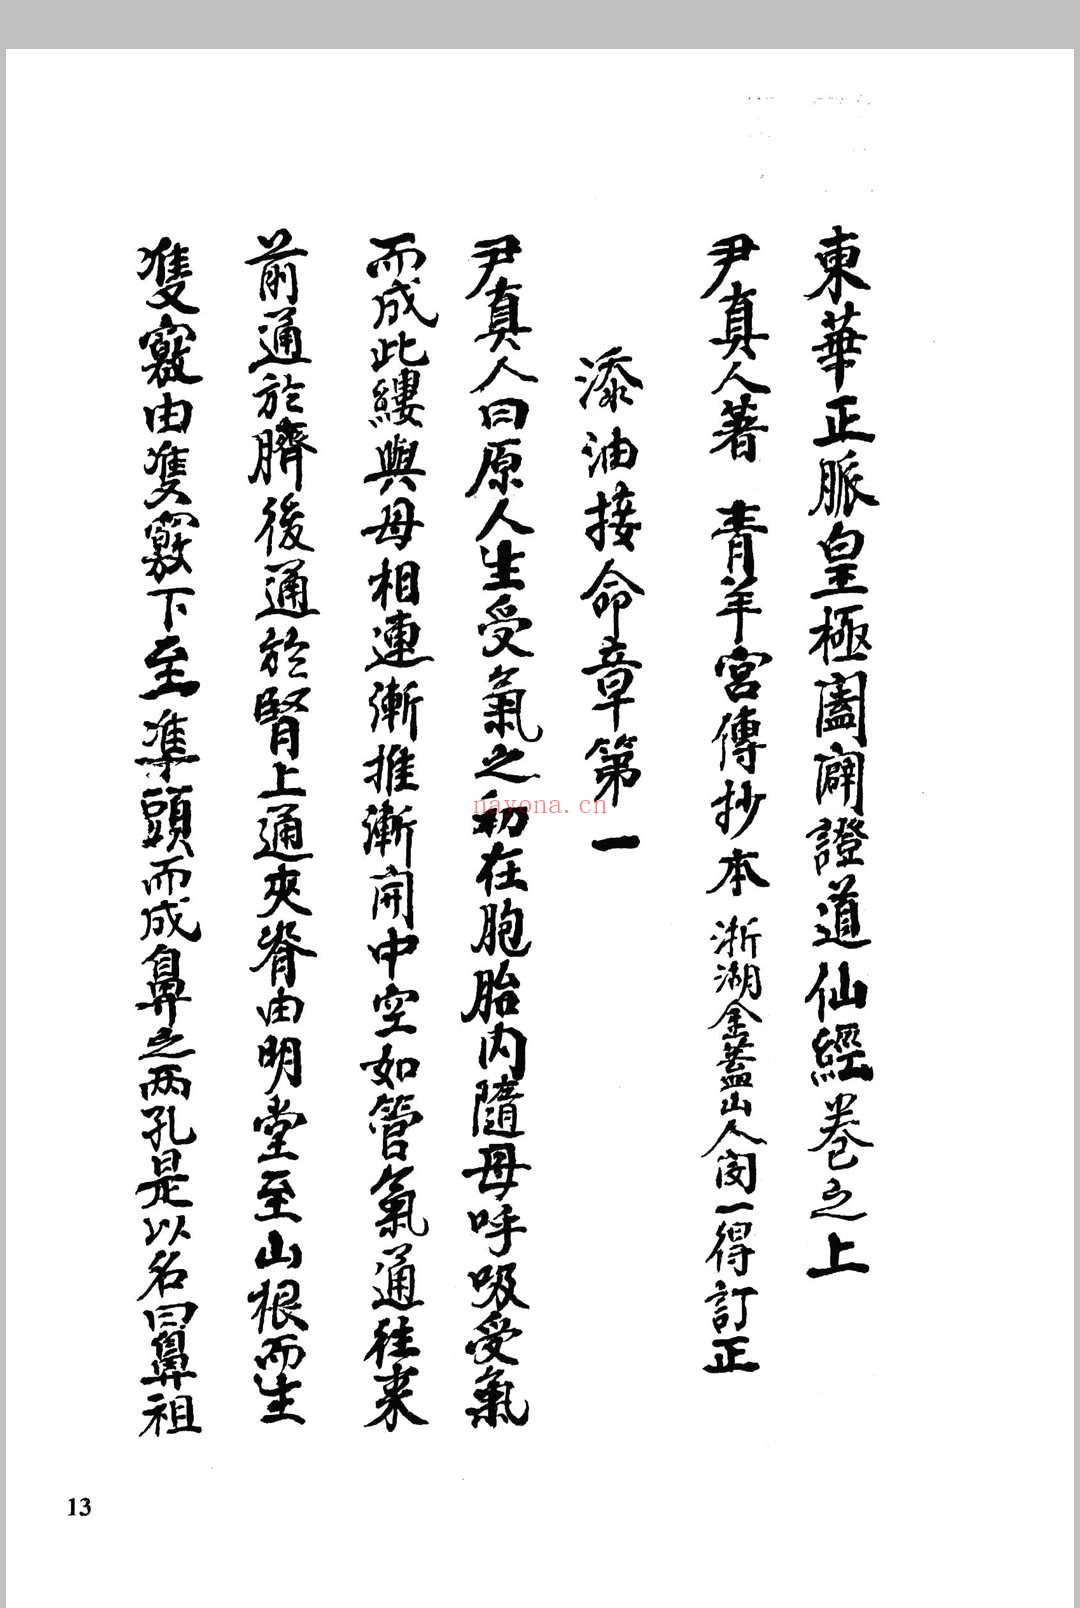 東華正脈皇極闔闢證道仙經卷之上
尹真人著 青羊宮傳抄本 浙湖金蓋山人閔一得訂正
添油接命章第一
尹真人曰原人生受氣之初在胞胎内隨母呼吸受氣
而成此縷與母相連漸推漸開中空如管氣通往来
前通於臍後通於腎上通夾脊由明堂至山根而生
隻竅由隻竅下至準頭而成鼻之两孔是以名曰鼻祖
nayona.cn
13